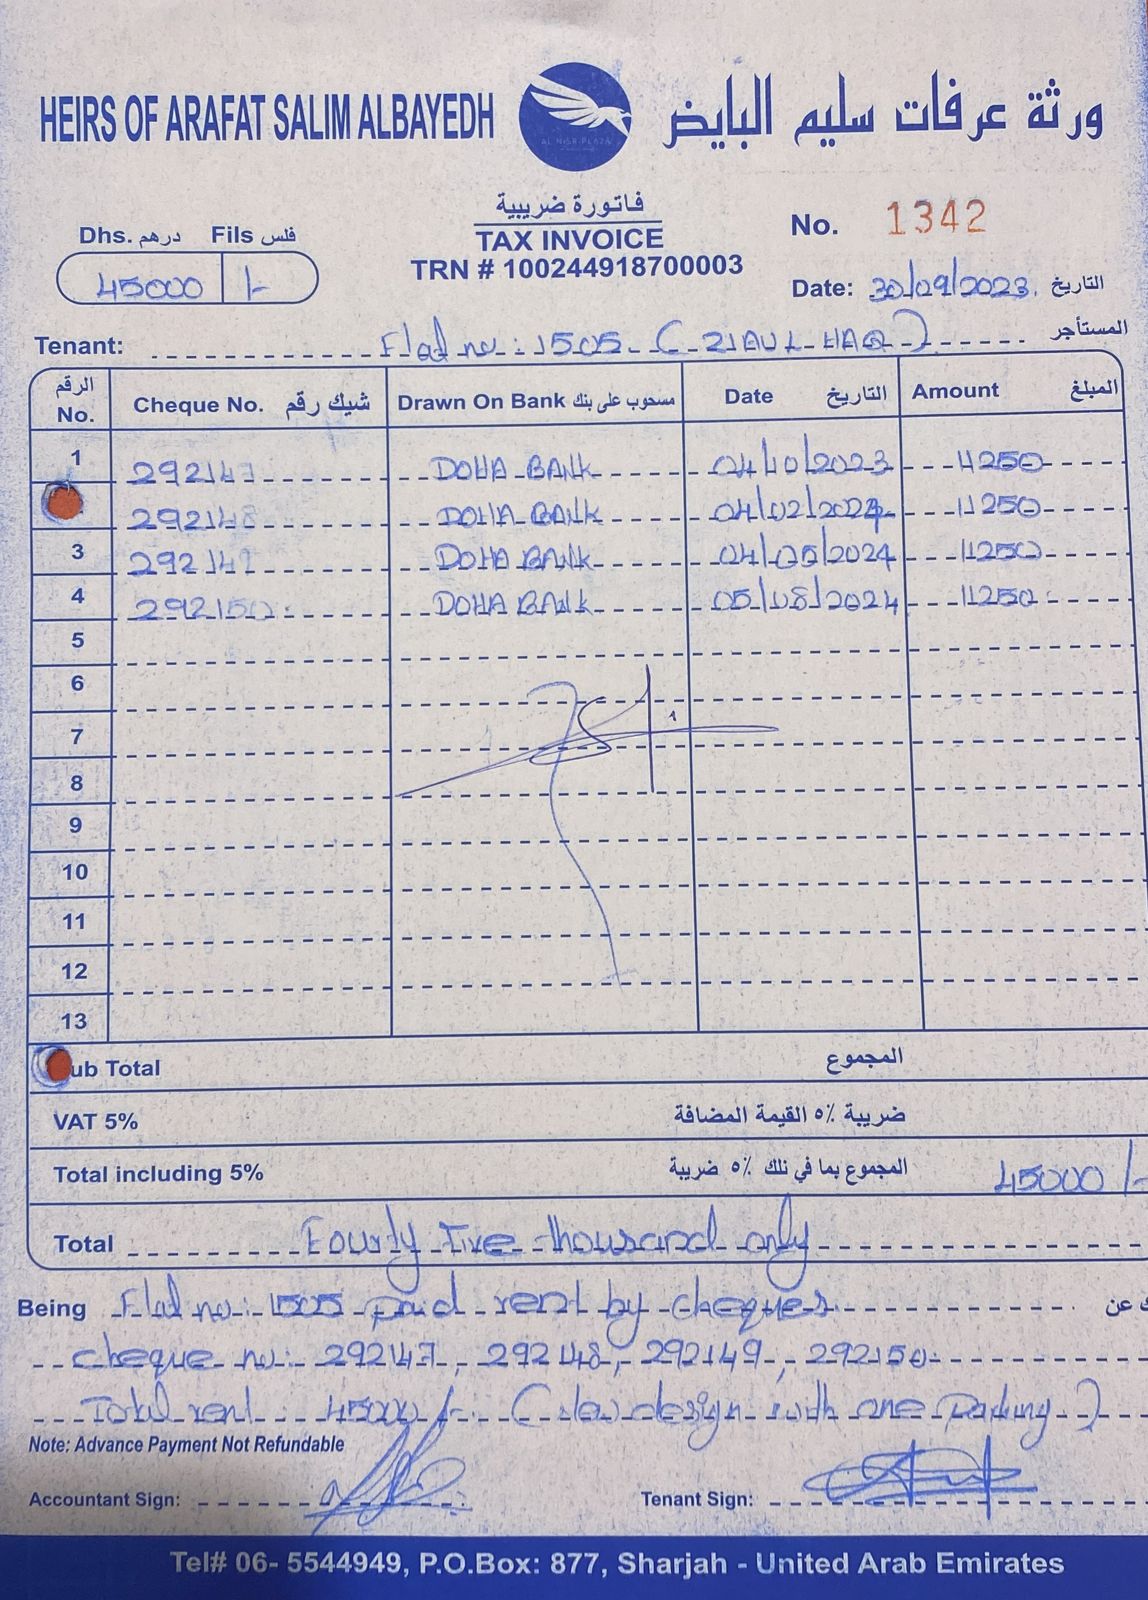 HEIRS OF ARAFAT SALIM ALBAYEDH
ورثة عرفات سليم البايض
AL NISR PLAZA
فاتورة ضريبية
TAX INVOICE
TRN # 100244918700003
No. 1342
Dhs. درهم Fils فلس
45000 /-
Date: 30/09/2023 التاريخ
Tenant: Flat no: 1505 (ZIAUL HAQ) المستأجر
الرقم No. Cheque No. شيك رقم Drawn On Bank مسحوب على بنك Date التاريخ Amount المبلغ
1 292147 DOHA BANK 04/10/2023 11250
292148 DOHA BANK 04/02/2024 11250
3 292149 DOHA BANK 04/05/2024 11250
4 292150 DOHA BANK 05/08/2024 11250
5
6
7
8
9
10
11
12
13
ub Total المجموع
VAT 5% ضريبة ٥٪ القيمة المضافة
Total including 5% المجموع بما في ذلك ٥٪ ضريبة 45000/-
Total Fourty Five thousand only
Being Flat no: 1505 paid rent by cheques عن
cheque no: 292147, 292148, 292149, 292150
Total rent 45000/- (new design with one parking)
Note: Advance Payment Not Refundable
Accountant Sign: Tenant Sign:
Tel# 06- 5544949, P.O.Box: 877, Sharjah - United Arab Emirates